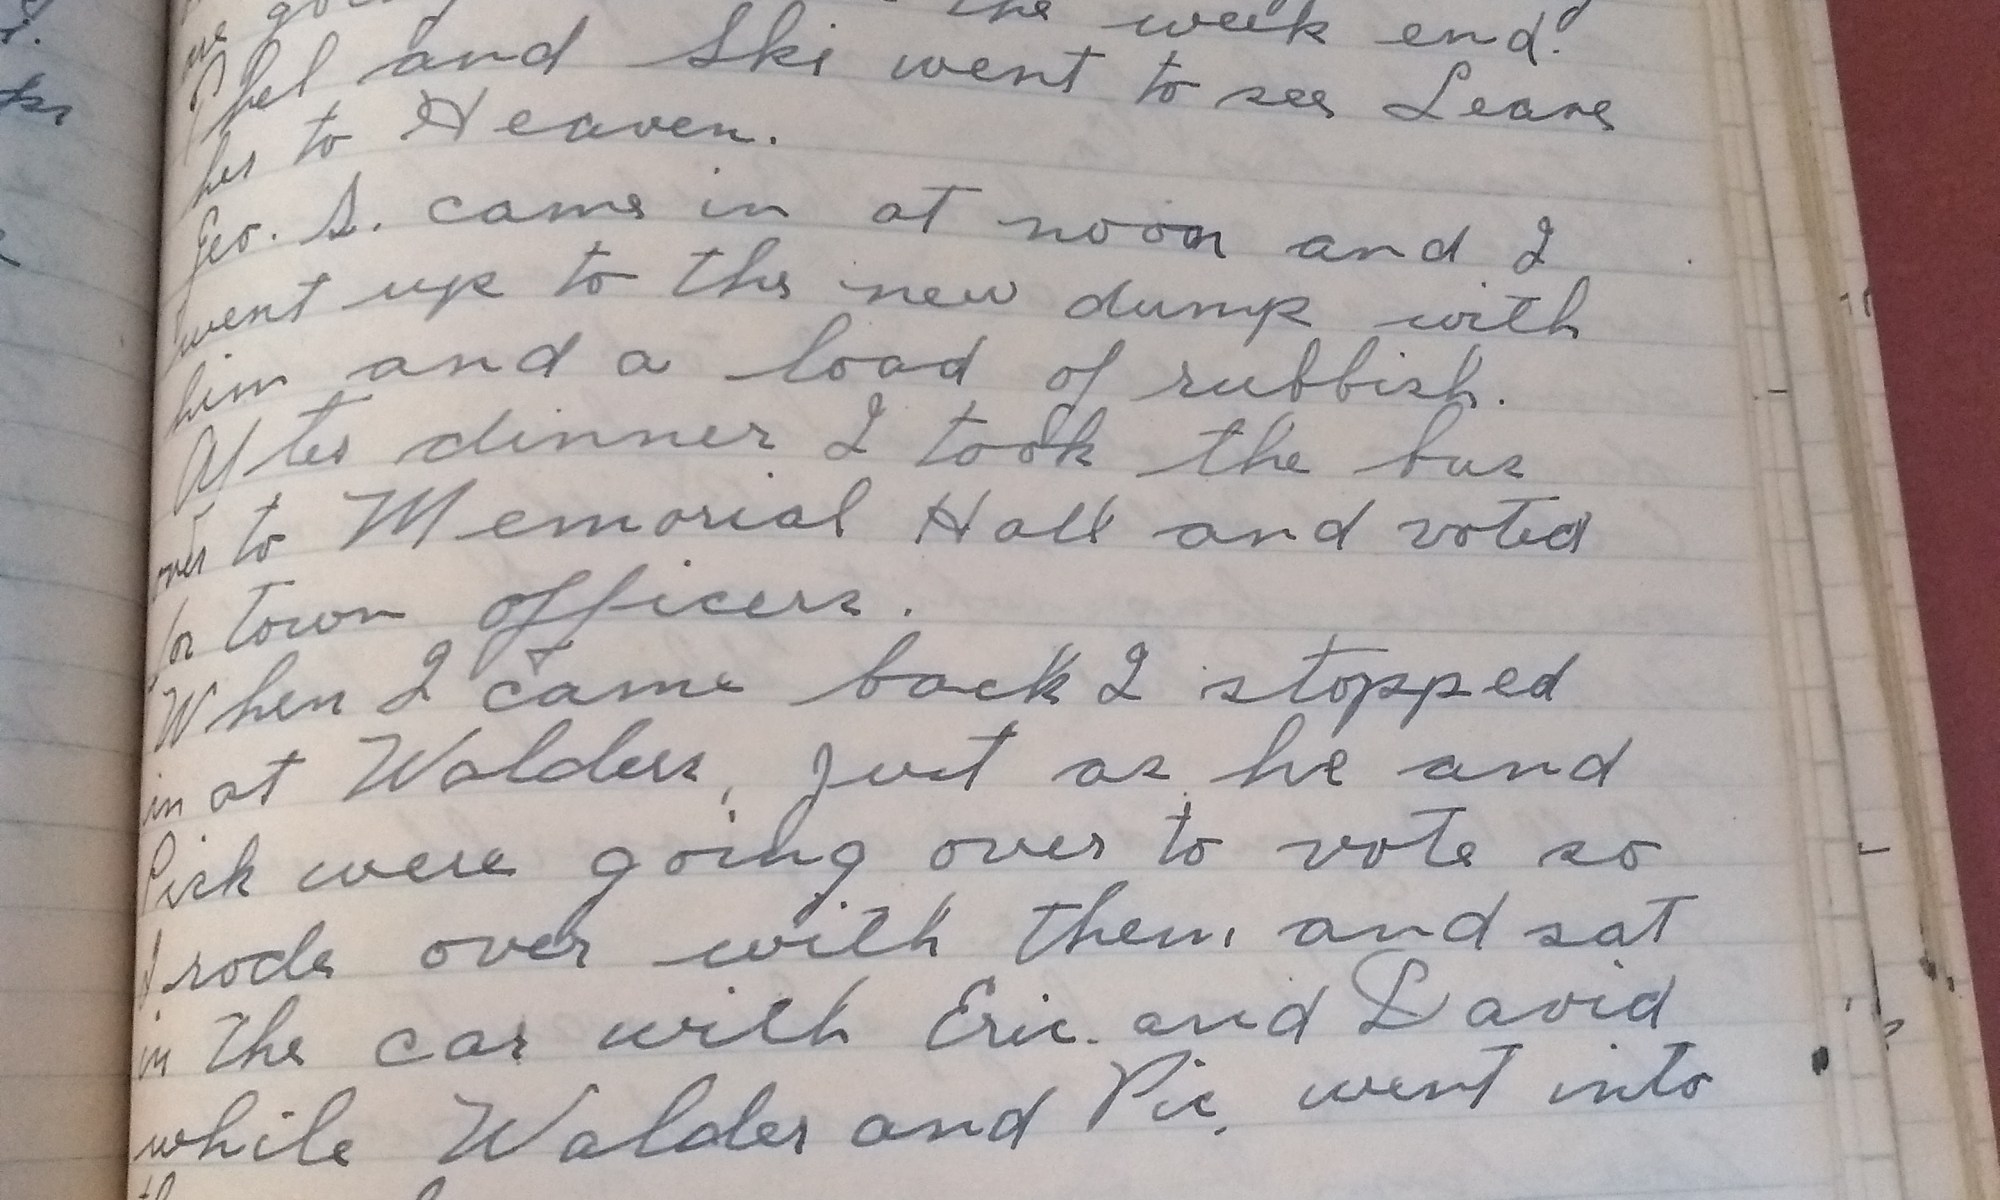 the week end.
Phel and Ski went to see Leave
her to Heaven.
Geo. S. came in at noon and I
went up to the new dump with
him and a load of rubbish.
After dinner I took the bus
over to Memorial Hall and voted
for town officers.
When I came back I stopped
in at Walders, just as he and
Pick were going over to vote so
I rode over with them and sat
in the car with Eric and David
while Walder and Pic, went into